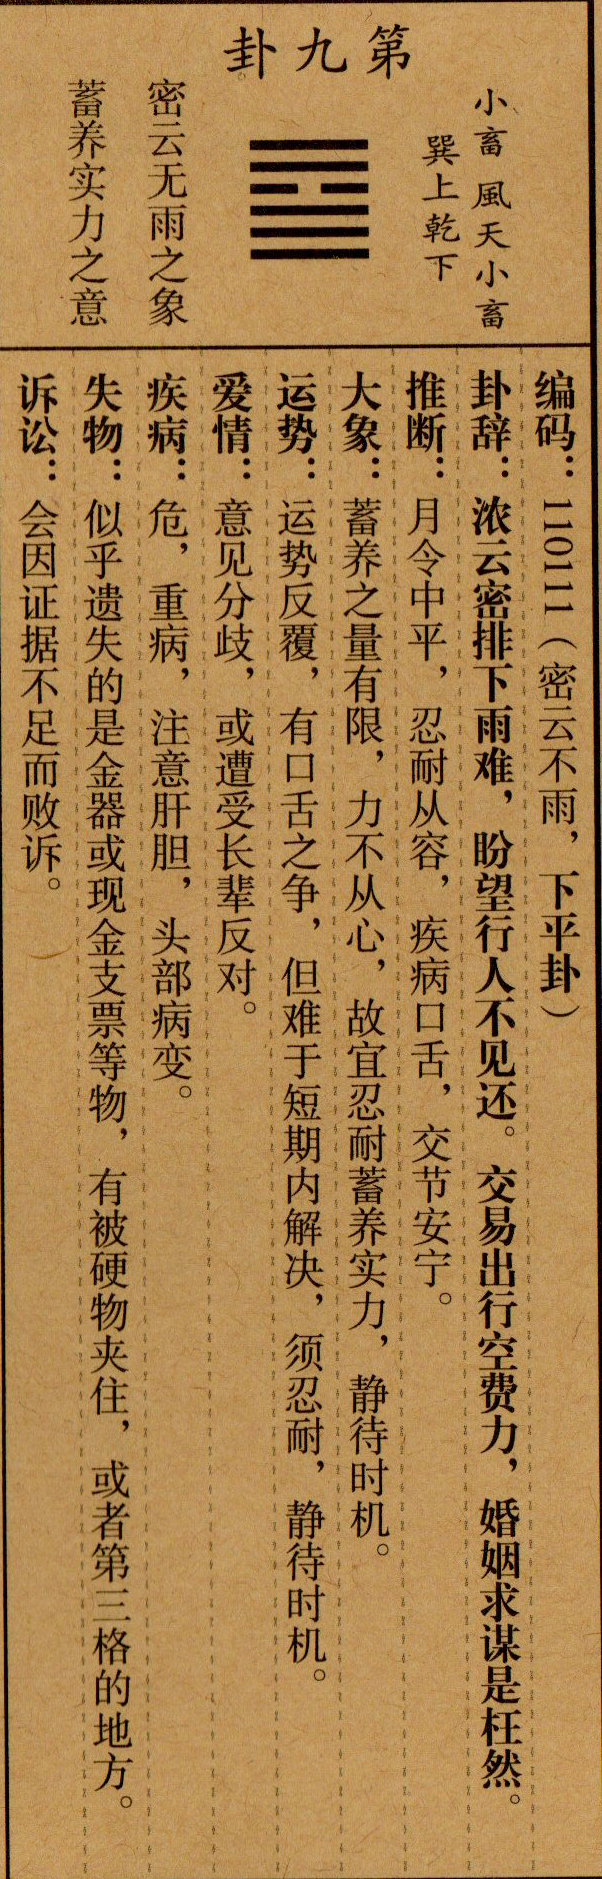 第九卦
小畜 風天小畜
巽上乾下
密云无雨之象
蓄养实力之意
编码：110111（密云不雨，下平卦）
卦辞：浓云密排下雨难，盼望行人不见还。交易出行空费力，婚姻求谋是枉然。
推断：月令中平，忍耐从容，疾病口舌，交节安宁。
大象：蓄养之量有限，力不从心，故宜忍耐蓄养实力，静待时机。
运势：运势反覆，有口舌之争，但难于短期内解决，须忍耐，静待时机。
爱情：意见分歧，或遭受长辈反对。
疾病：危，重病，注意肝胆，头部病变。
失物：似乎遗失的是金器或现金支票等物，有被硬物夹住，或者第三格的地方。
诉讼：会因证据不足而败诉。